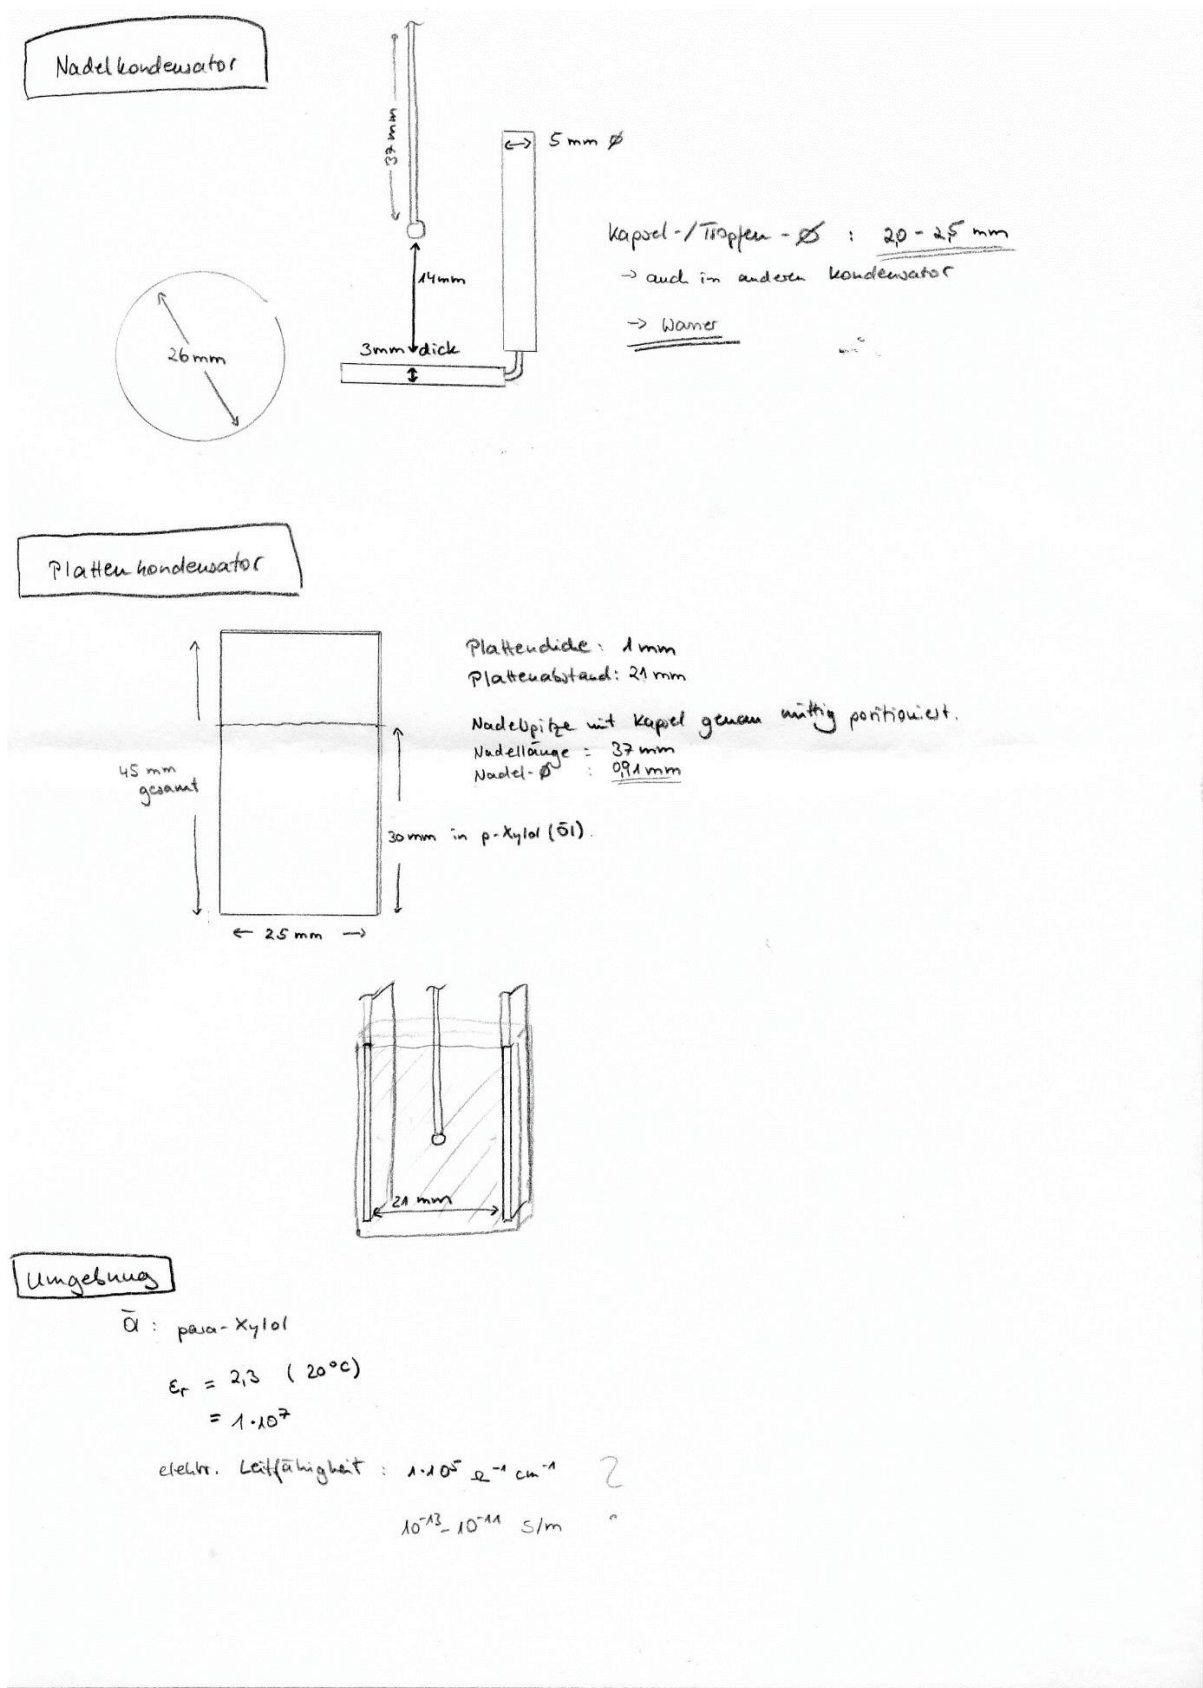 Nadelkondensator
37 mm
5 mm ø
Kapsel-/Tropfen-Ø : 2,0 - 2,5 mm
→ auch in anderen Kondensator
→ Wasser
14mm
3mm dick
26mm
Plattenkondensator
Plattendicke : 1 mm
Plattenabstand : 21 mm
Nadelspitze mit Kapsel genau mittig positioniert.
Nadellänge = 37 mm
Nadel-Ø : 0,91 mm
45 mm
gesamt
30mm in p-Xylol (Öl).
← 25 mm →
21 mm
Umgebung
Öl : para-Xylol
εr = 2,3 (20°C)
= 1·10⁷
elektr. Leitfähigkeit : 1·10⁵ Ω⁻¹ cm⁻¹ ?
10⁻¹³ - 10⁻¹¹ S/m